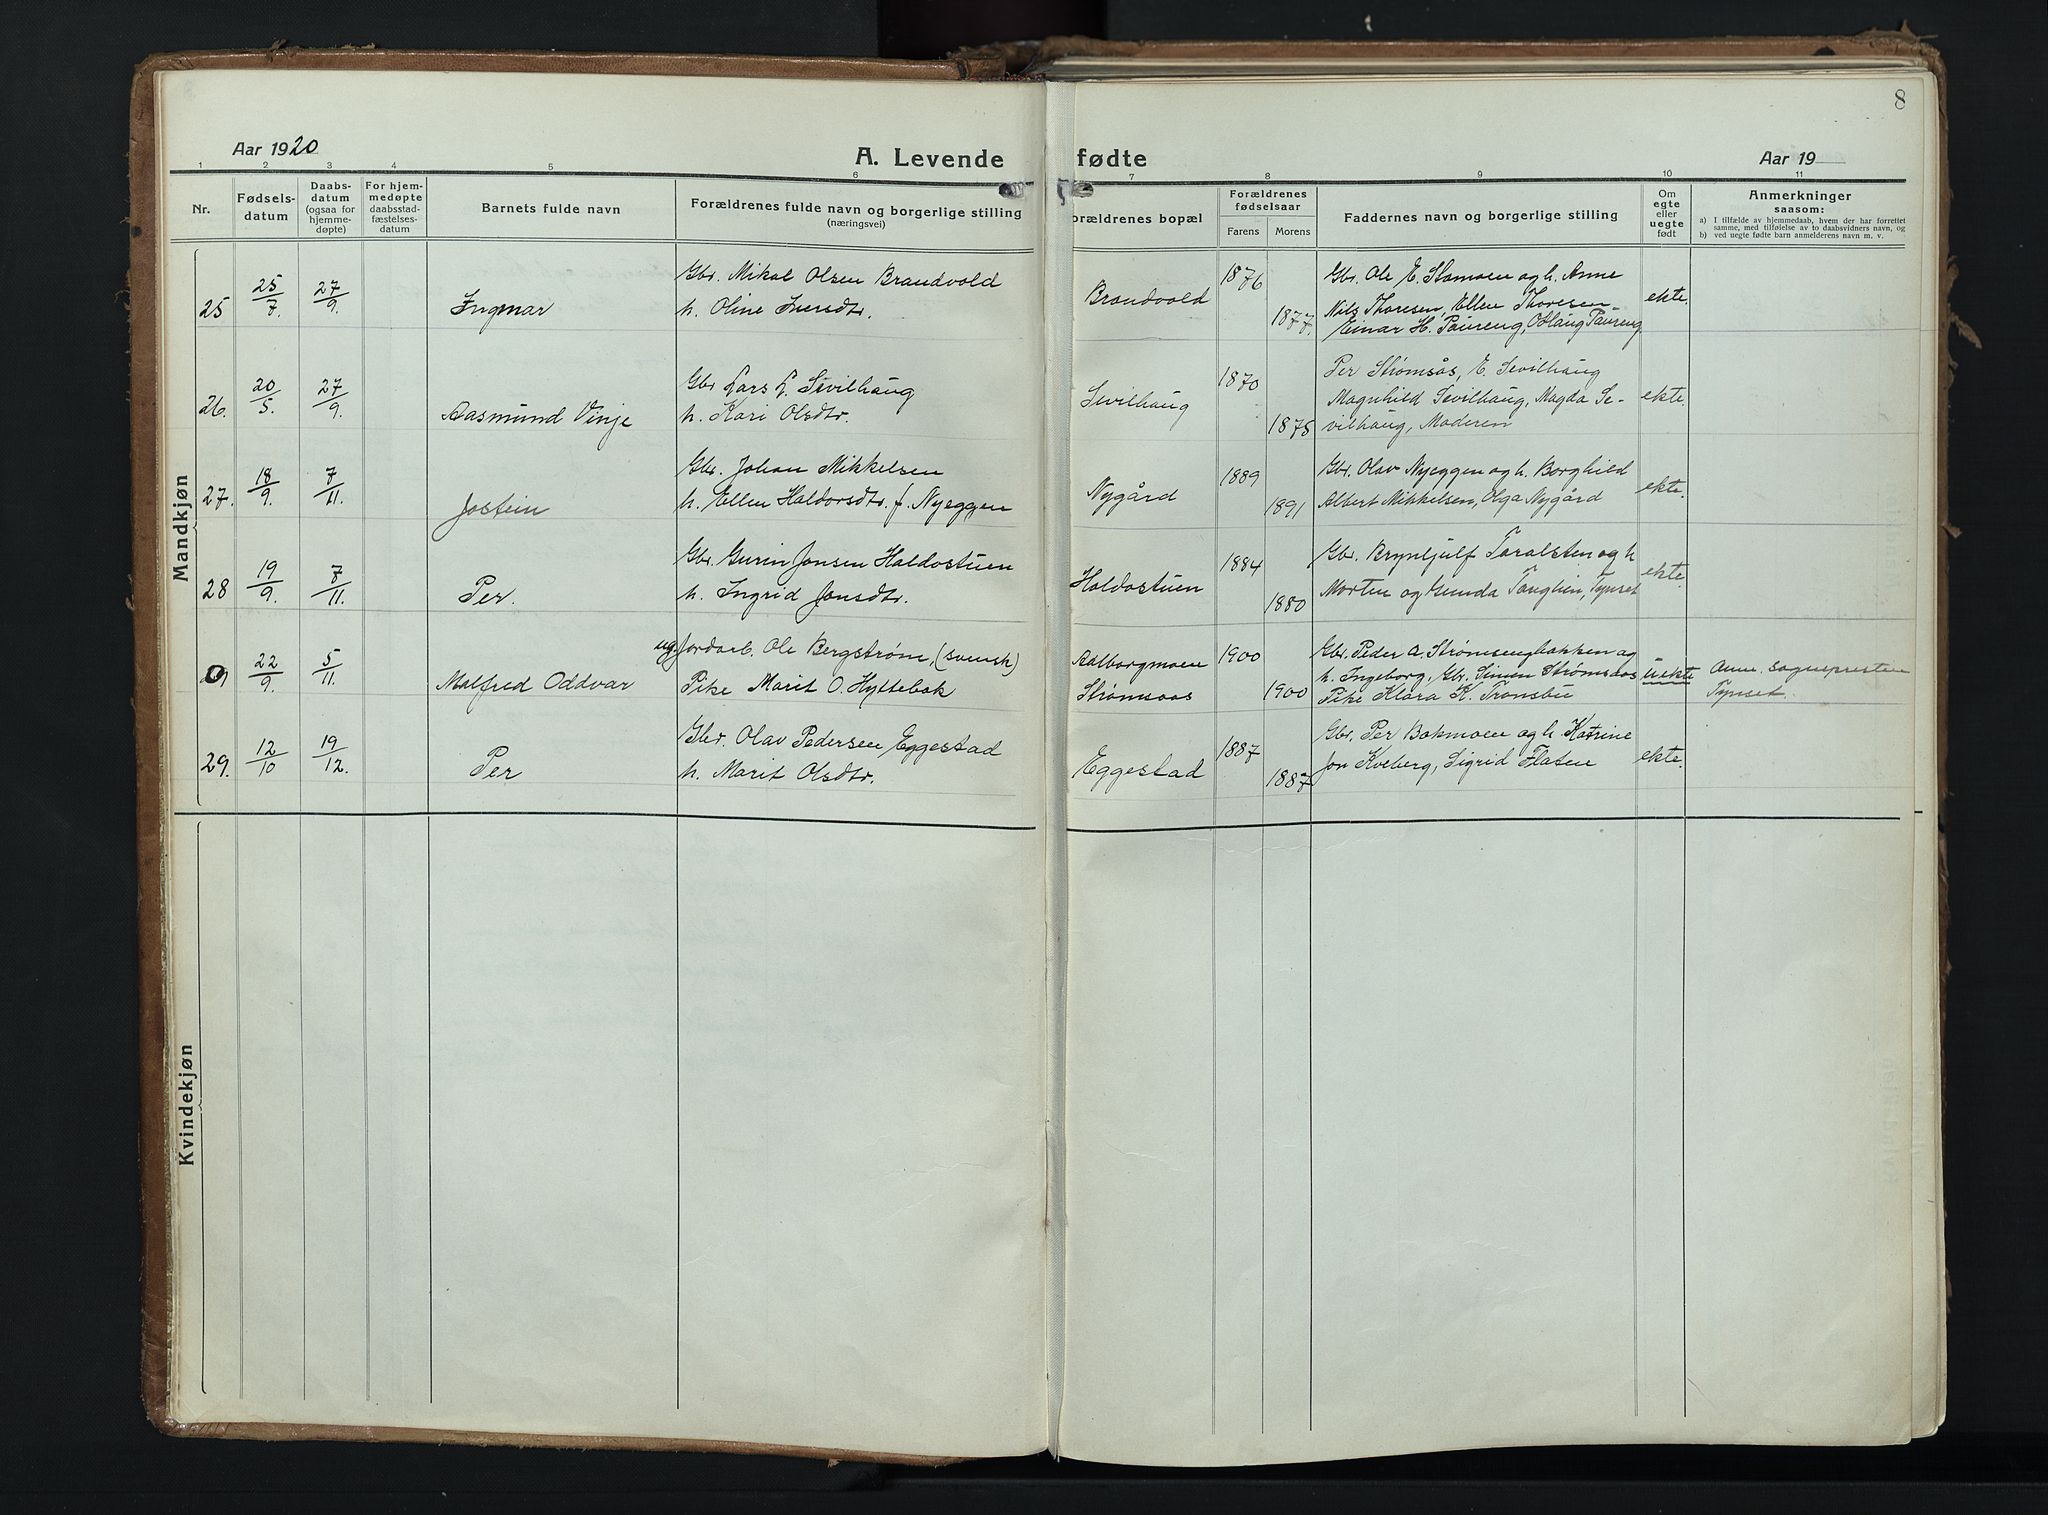 8
Aar 1920
A. Levende fødte
Aar 19
1 2 3 4 5 6 7 8 9 10 11
Nr.
Fødsels-
datum
Daabs-
datum
(ogsaa for
hjemme-
døpte)
For hjem-
medøpte
daabsstad-
fæstelses-
datum
Barnets fulde navn
Forældrenes fulde navn og borgerlige stilling
(næringsvei)
orældrenes bopæl
Forældrenes
fødselsaar
Farens
Morens
Faddernes navn og borgerlige stilling
Om
egte
eller
uegte
født
Anmerkninger
saasom:
a) I tilfælde av hjemmedaab, hvem der har forrettet
samme, med tilføielse av to daabsvidners navn, og
b) ved uegte fødte barn anmelderens navn m. v.
Mandkjøn
25 25/7. 27/9. Ingmar
Gbr. Mikal Olsen Brandvold
h. Oline Iversdtr.
Brandvold 1876 1877.
Gbr. Ole E. Stamoen og h. Anne
Nils Thoresen, Ellen Thoresen
Einar H. Paureng, O. Haug Paureng
ekte.
26. 20/5. 27/9. Aasmund Vinje
Gbr. Lars L. Sevilhaug
h. Kari Olsdtr.
Sevilhaug 1870 1878
Per Strømsås, E. Sevilhaug
Magnhild Sevilhaug, Magda Se-
vilhaug, Moderen
ekte.
27. 18/9. 7/11. Jostein
Gbr. Johan Mikkelsen
h. Ellen Haldorsdtr. f. Nyeggen
Nygård 1889 1891
Gbr. Olav Nyeggen og h. Borghild
Albert Mikkelsen, Olga Nygård
ekte.
28 19/9. 7/11. Per.
Gbr. Jonsen Haldostuen
h. Ingrid Jonsdtr.
Haldostuen 1884 1880
Gbr. Brynljulf Taralsten og h
Morten og Gunda Tanglien, Tynset
ekte.
22/9. 5/11. Malfred Oddvar
ug. Jordarb. Ole Bergstrøm, (svensk)
Pike Marit O. Hyttebak
Aalborgmoen
Strømsaas
1900 1900
Gbr. Peder A. Strømsengbakken og
h. Ingeborg, Gbr. Simen Strømsaas
Pike Klara K. Tronsbu
uekte
Anm. sognepresten
Tynset.
29. 12/10 19/12. Per
Gbr. Olav Pedersen Eggestad
h. Marit Olsdtr.
Eggestad 1887 1887
Gbr. Per Bakmoen og h. Katrine
Jon Kveberg, Sigrid Flaten
ekte.
Kvindekjøn